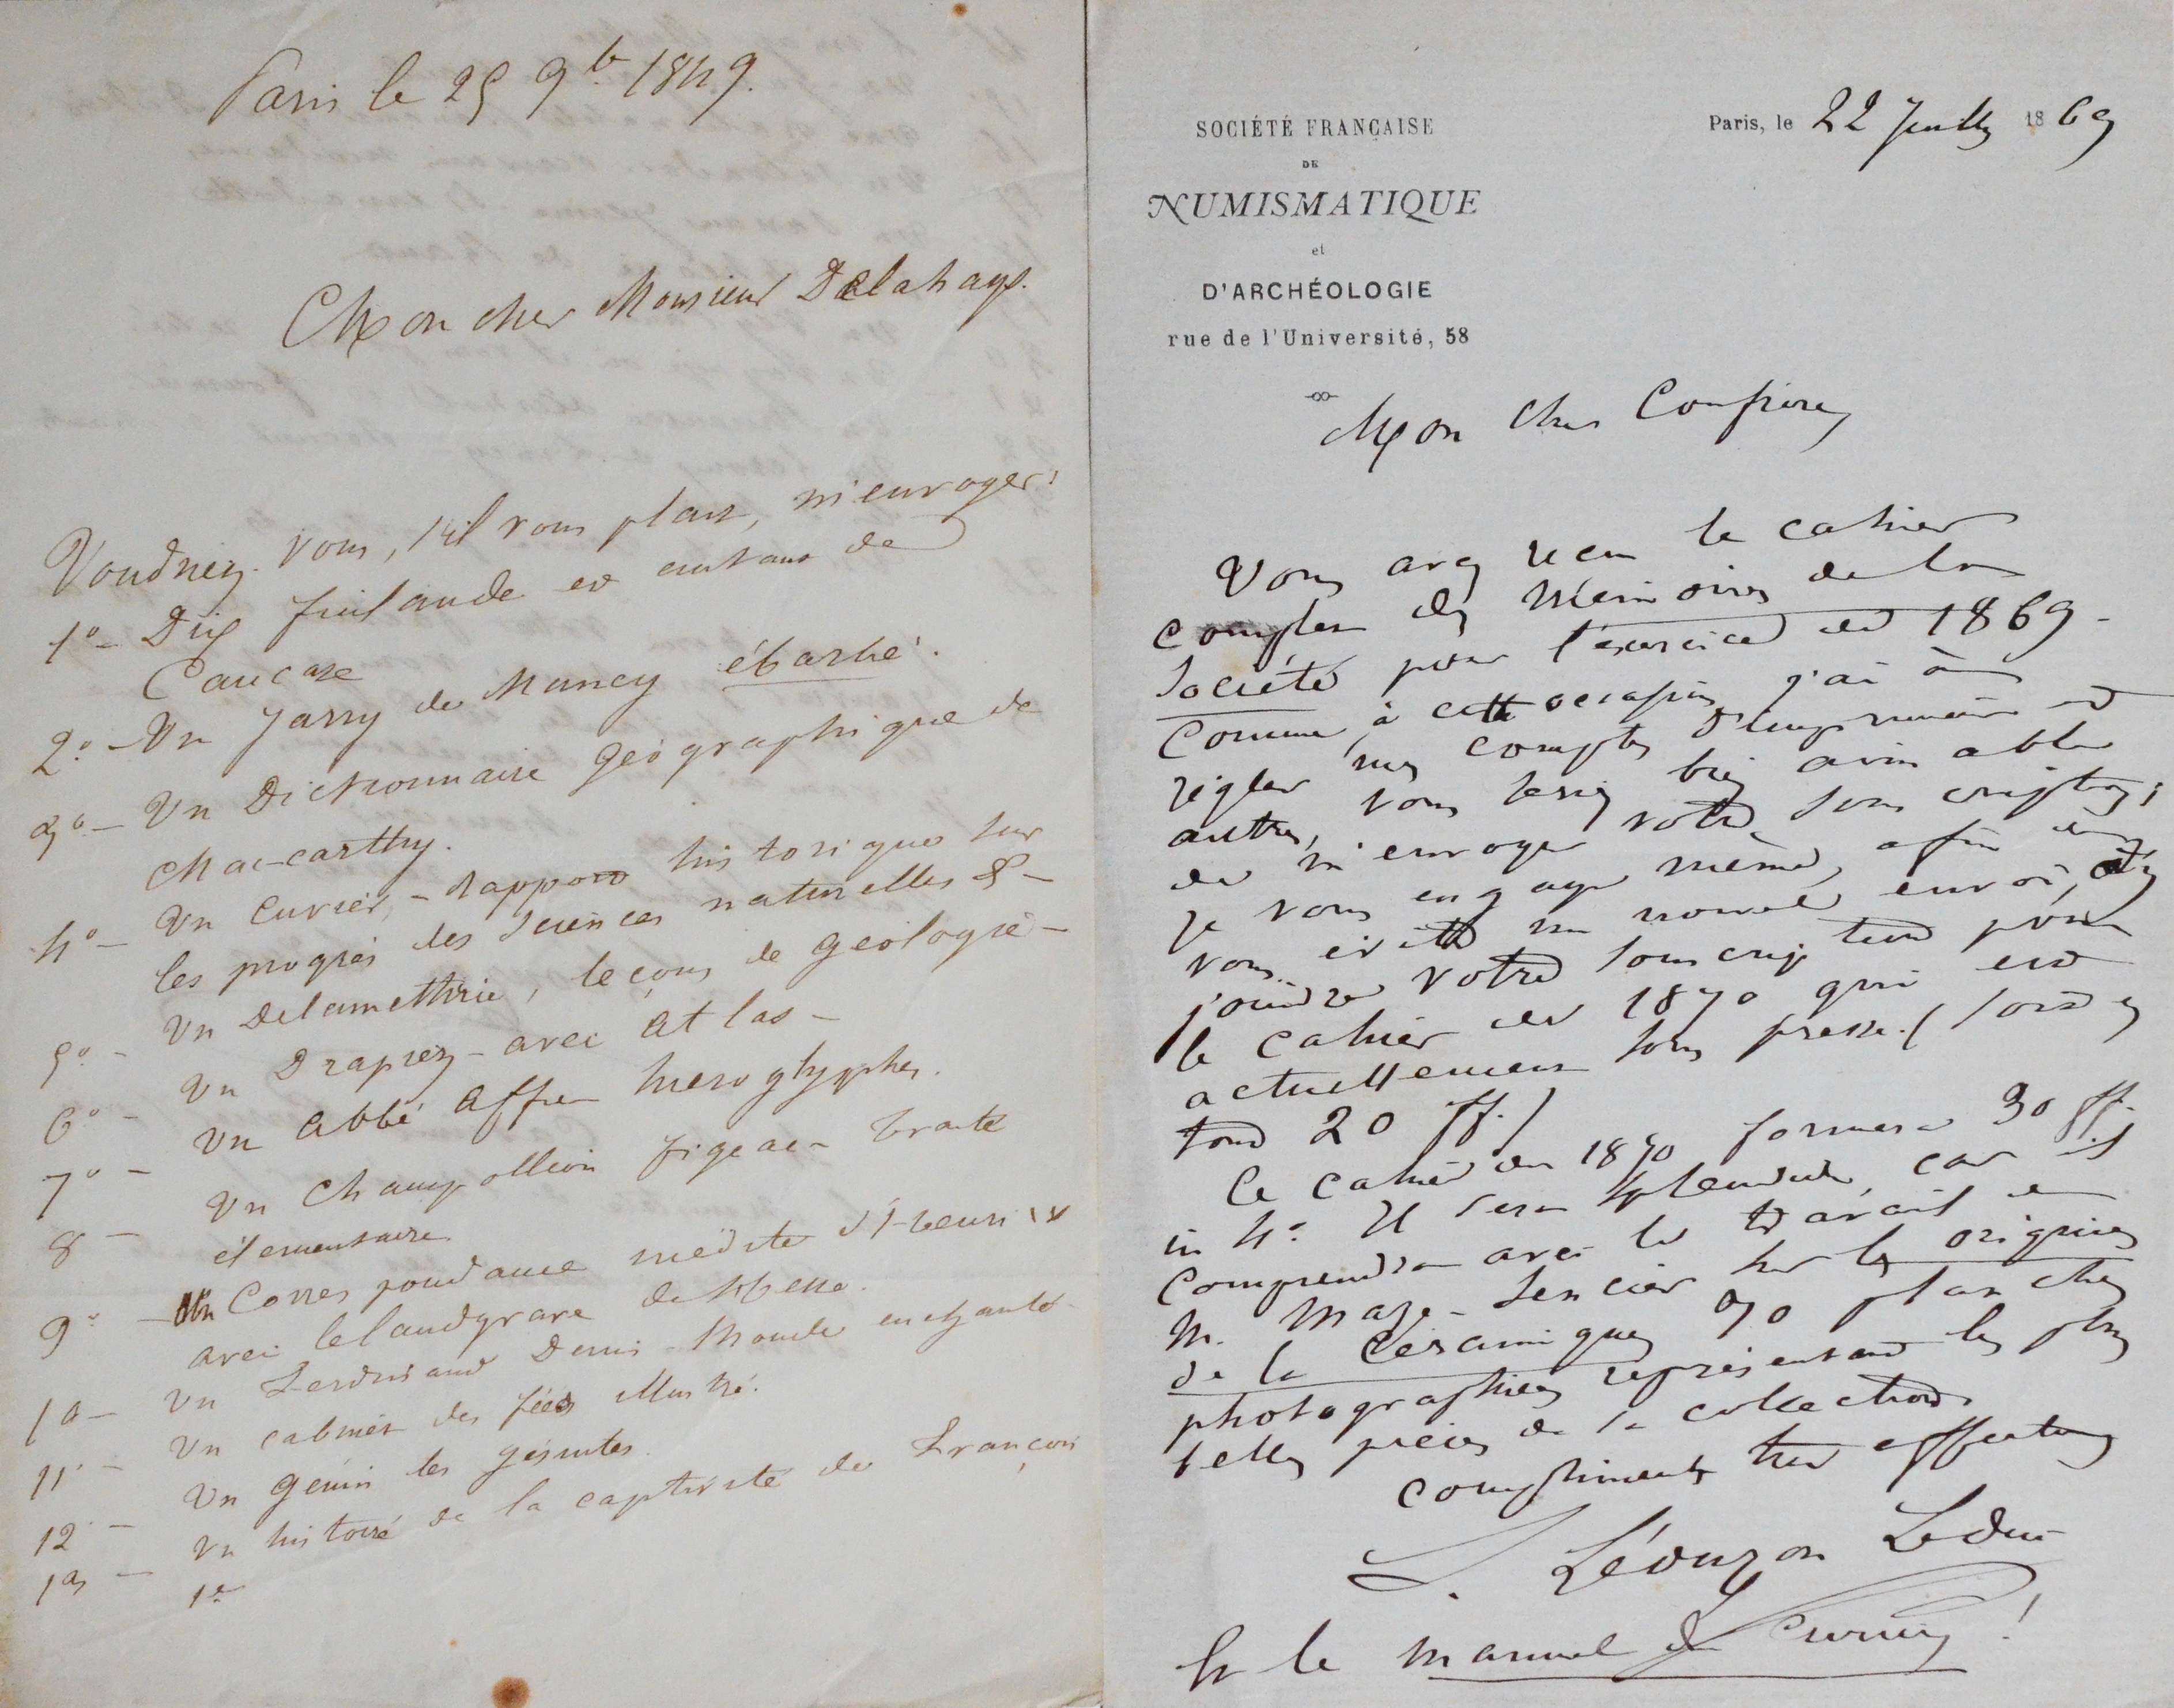 Paris le 25 9b. 1849.
Mon cher Monsieur Delahays.
Voudriez-vous, s'il vous plait, m'envoyer:
1º- Dix finlande et autant de
Caucase
2º- Un Jarry de Mancy ébarbé.
3º- Un Dictionnaire géographique de
Mac-carthy.
4º- Un Cuvier, - rapport historique sur
les progrès des Sciences naturelles &-
5º- Un Delamettrie, leçons de géologie-
6º- Un Drapiez - avec atlas-
7º- Un abbé affre hieroglyphes.
8- Un Champollion figeac - traité
élémentaire
9º- Un Correspondance inédite d'henri IV
avec le landgrave de hesse.
10- Un Ferdinand Denis - Monde enchanté-
11- Un cabinet des fées illustré.
12- Un génin les jésuites.
13- Un histoire de la captivité de François
1er
SOCIÉTÉ FRANÇAISE
DE
NUMISMATIQUE
et
D'ARCHÉOLOGIE
rue de l'Université, 58
Paris, le 22 Juillet 1869
Mon cher Confrère,
Vous avez reçu le cahier
complet des Mémoires de la
Société pour l'exercice de 1869-
Comme, à cette occasion, j'ai à
régler mes comptes d'imprimerie et
autres, vous seriez bien aimable
de m'envoyer votre souscription;
je vous engage même, afin de
vous éviter un nouvel envoi, d'y
joindre votre souscription pour
le cahier de 1870 qui est
actuellement sous presse. (soit en
tout 20 ff.)
Ce cahier de 1870 formera 30 ff.
in 4º. Il sera splendide, car il
comprendra avec le travail de
M. Maze-Sencier sur les origines
de la Céramique, 70 planches
photographiées représentant les plus
belles pièces de la collection.
Compliments très affectueux
L. Léouzon Leduc
Et le manuel de !